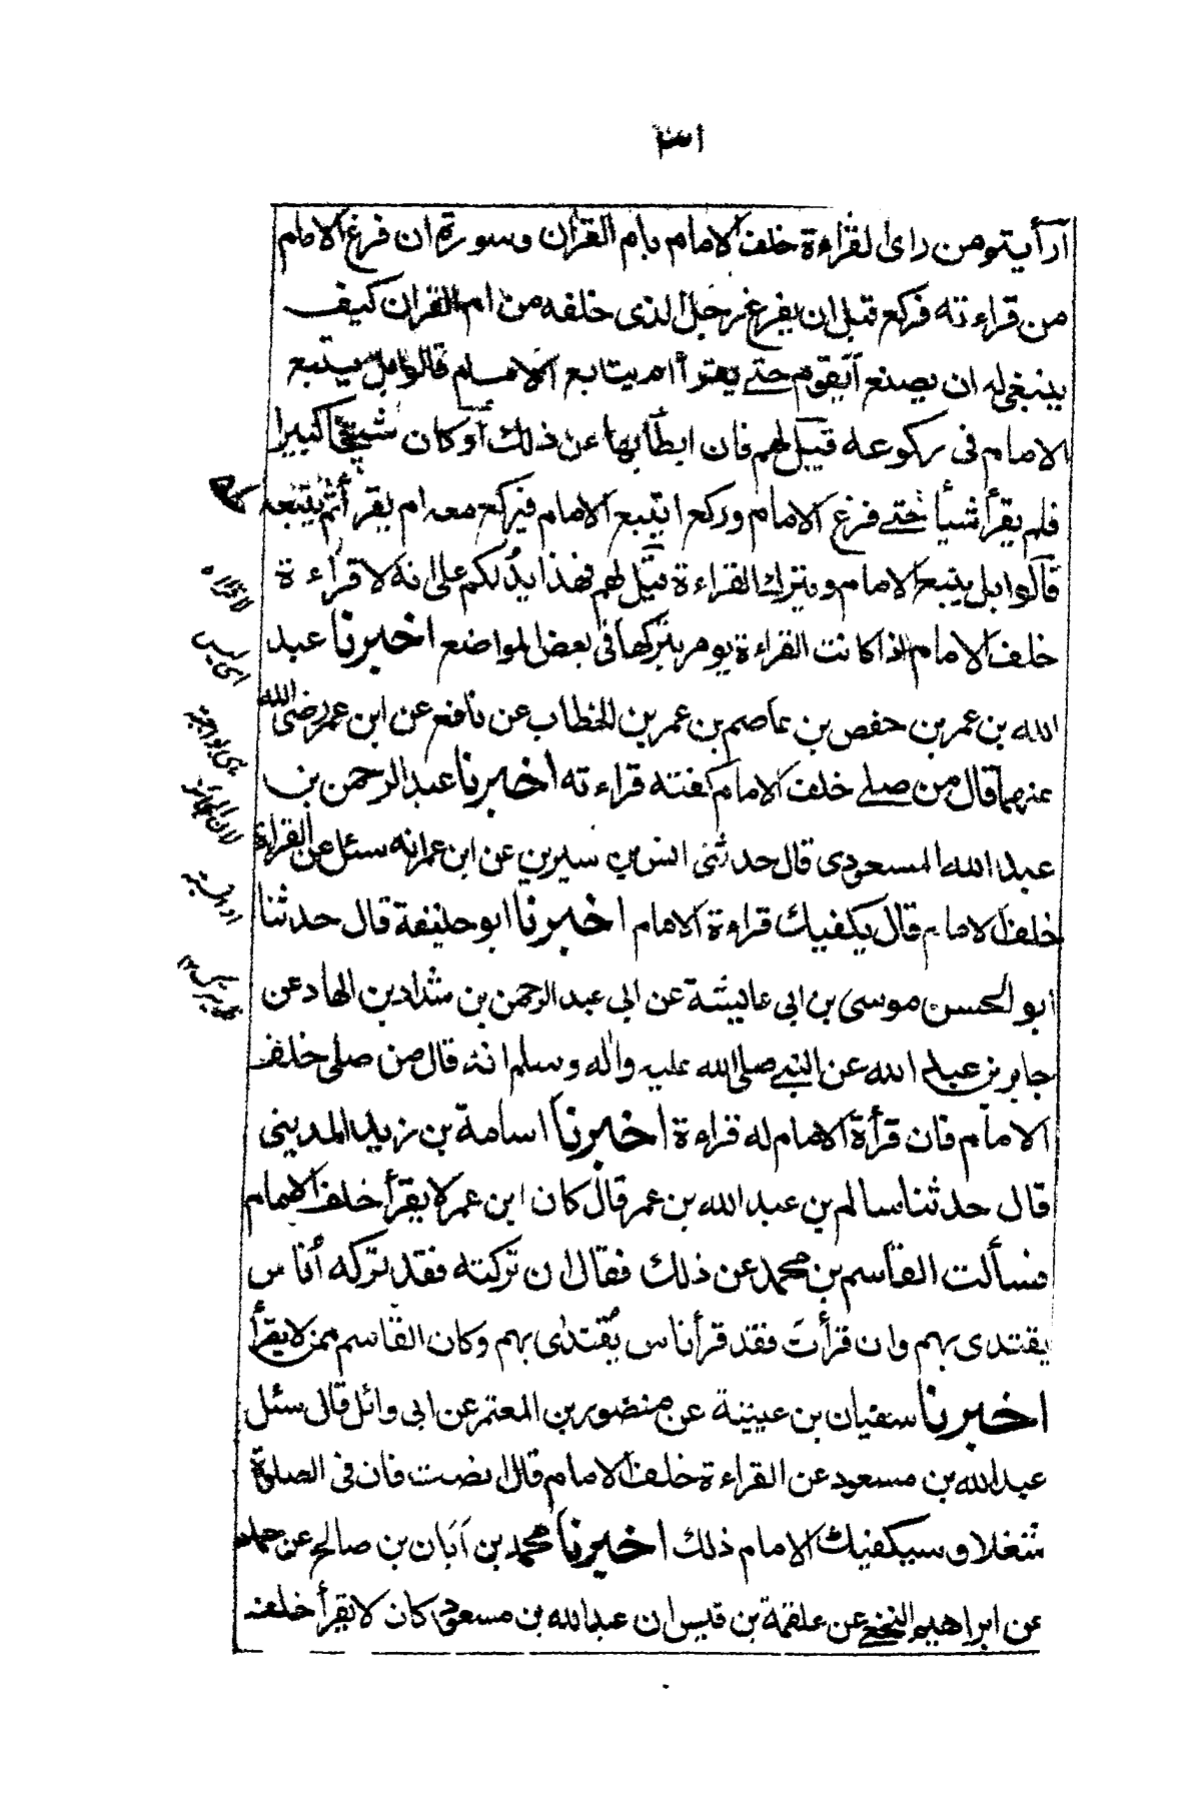 ٣١
أرأيتم ومن راى القراءة خلف الامام بام القرآن وسورة ان فرغ الامام
من قراءته فركع قبل ان يفرغ رجل الذى خلفه من ام القران كيف
ينبغى له ان يصنع أيقوم حتى يقرأ ام يتابع الامام قالوا بل يتبع
الامام فى ركوعه قيل لهم فان ابطأ بها عن ذلك أو كان شيخا كبيرا
فلم يقرأ شيأ حتى فرغ الامام وركع ايتبع الامام فيركع معه ام يقرأ ثم يتبعه
قالوا بل يتبع الامام ويترك القراءة قيل لهم فهذا يدلكم على انه لا قراءة
خلف الامام اذا كانت القراءة يومر بتركها فى بعض المواضع اخبرنا عبد
الله بن عمر بن حفص بن عاصم بن عمر بن الخطاب عن نافع عن ابن عمر رضى الله
عنهما قال من صلى خلف الامام كفته قراءته اخبرنا عبد الرحمن بن
عبد الله المسعودى قال حدثنى انس بن سيرين عن ابن عمر انه سئل عن القراءة
خلف الامام قال يكفيك قراءة الامام اخبرنا ابو حنيفة قال حدثنا
أبو الحسن موسى بن ابى عايشة عن ابى عبد الرحمن بن شداد بن الهاد عن
جابر بن عبد الله عن النبى صلى الله عليه واله وسلم انه قال من صلى خلف
الامام فان قرأة الامام له قراءة اخبرنا اسامة بن زيد المدينى
قال حدثنا سالم بن عبد الله بن عمر قال كان ابن عمر لا يقرأ خلف الامام
فسألت القاسم بن محمد عن ذلك فقال ان تركته فقد تركه أناس
يقتدى بهم وان قرأت فقد قرأ ناس يُقتدى بهم وكان القاسم ممن لا يقرأ
اخبرنا سفيان بن عيينة عن منصور بن المعتمر عن ابى وائل قال سئل
عبد الله بن مسعود عن القراءة خلف الامام قال انصت فان فى الصلوة
شغلا وسيكفيك الامام ذلك اخبرنا محمد بن أبان بن صالح عن حماد
عن ابراهيم النخعى عن علقمة بن قيس ان عبد الله بن مسعود كان لا يقرأ خلف